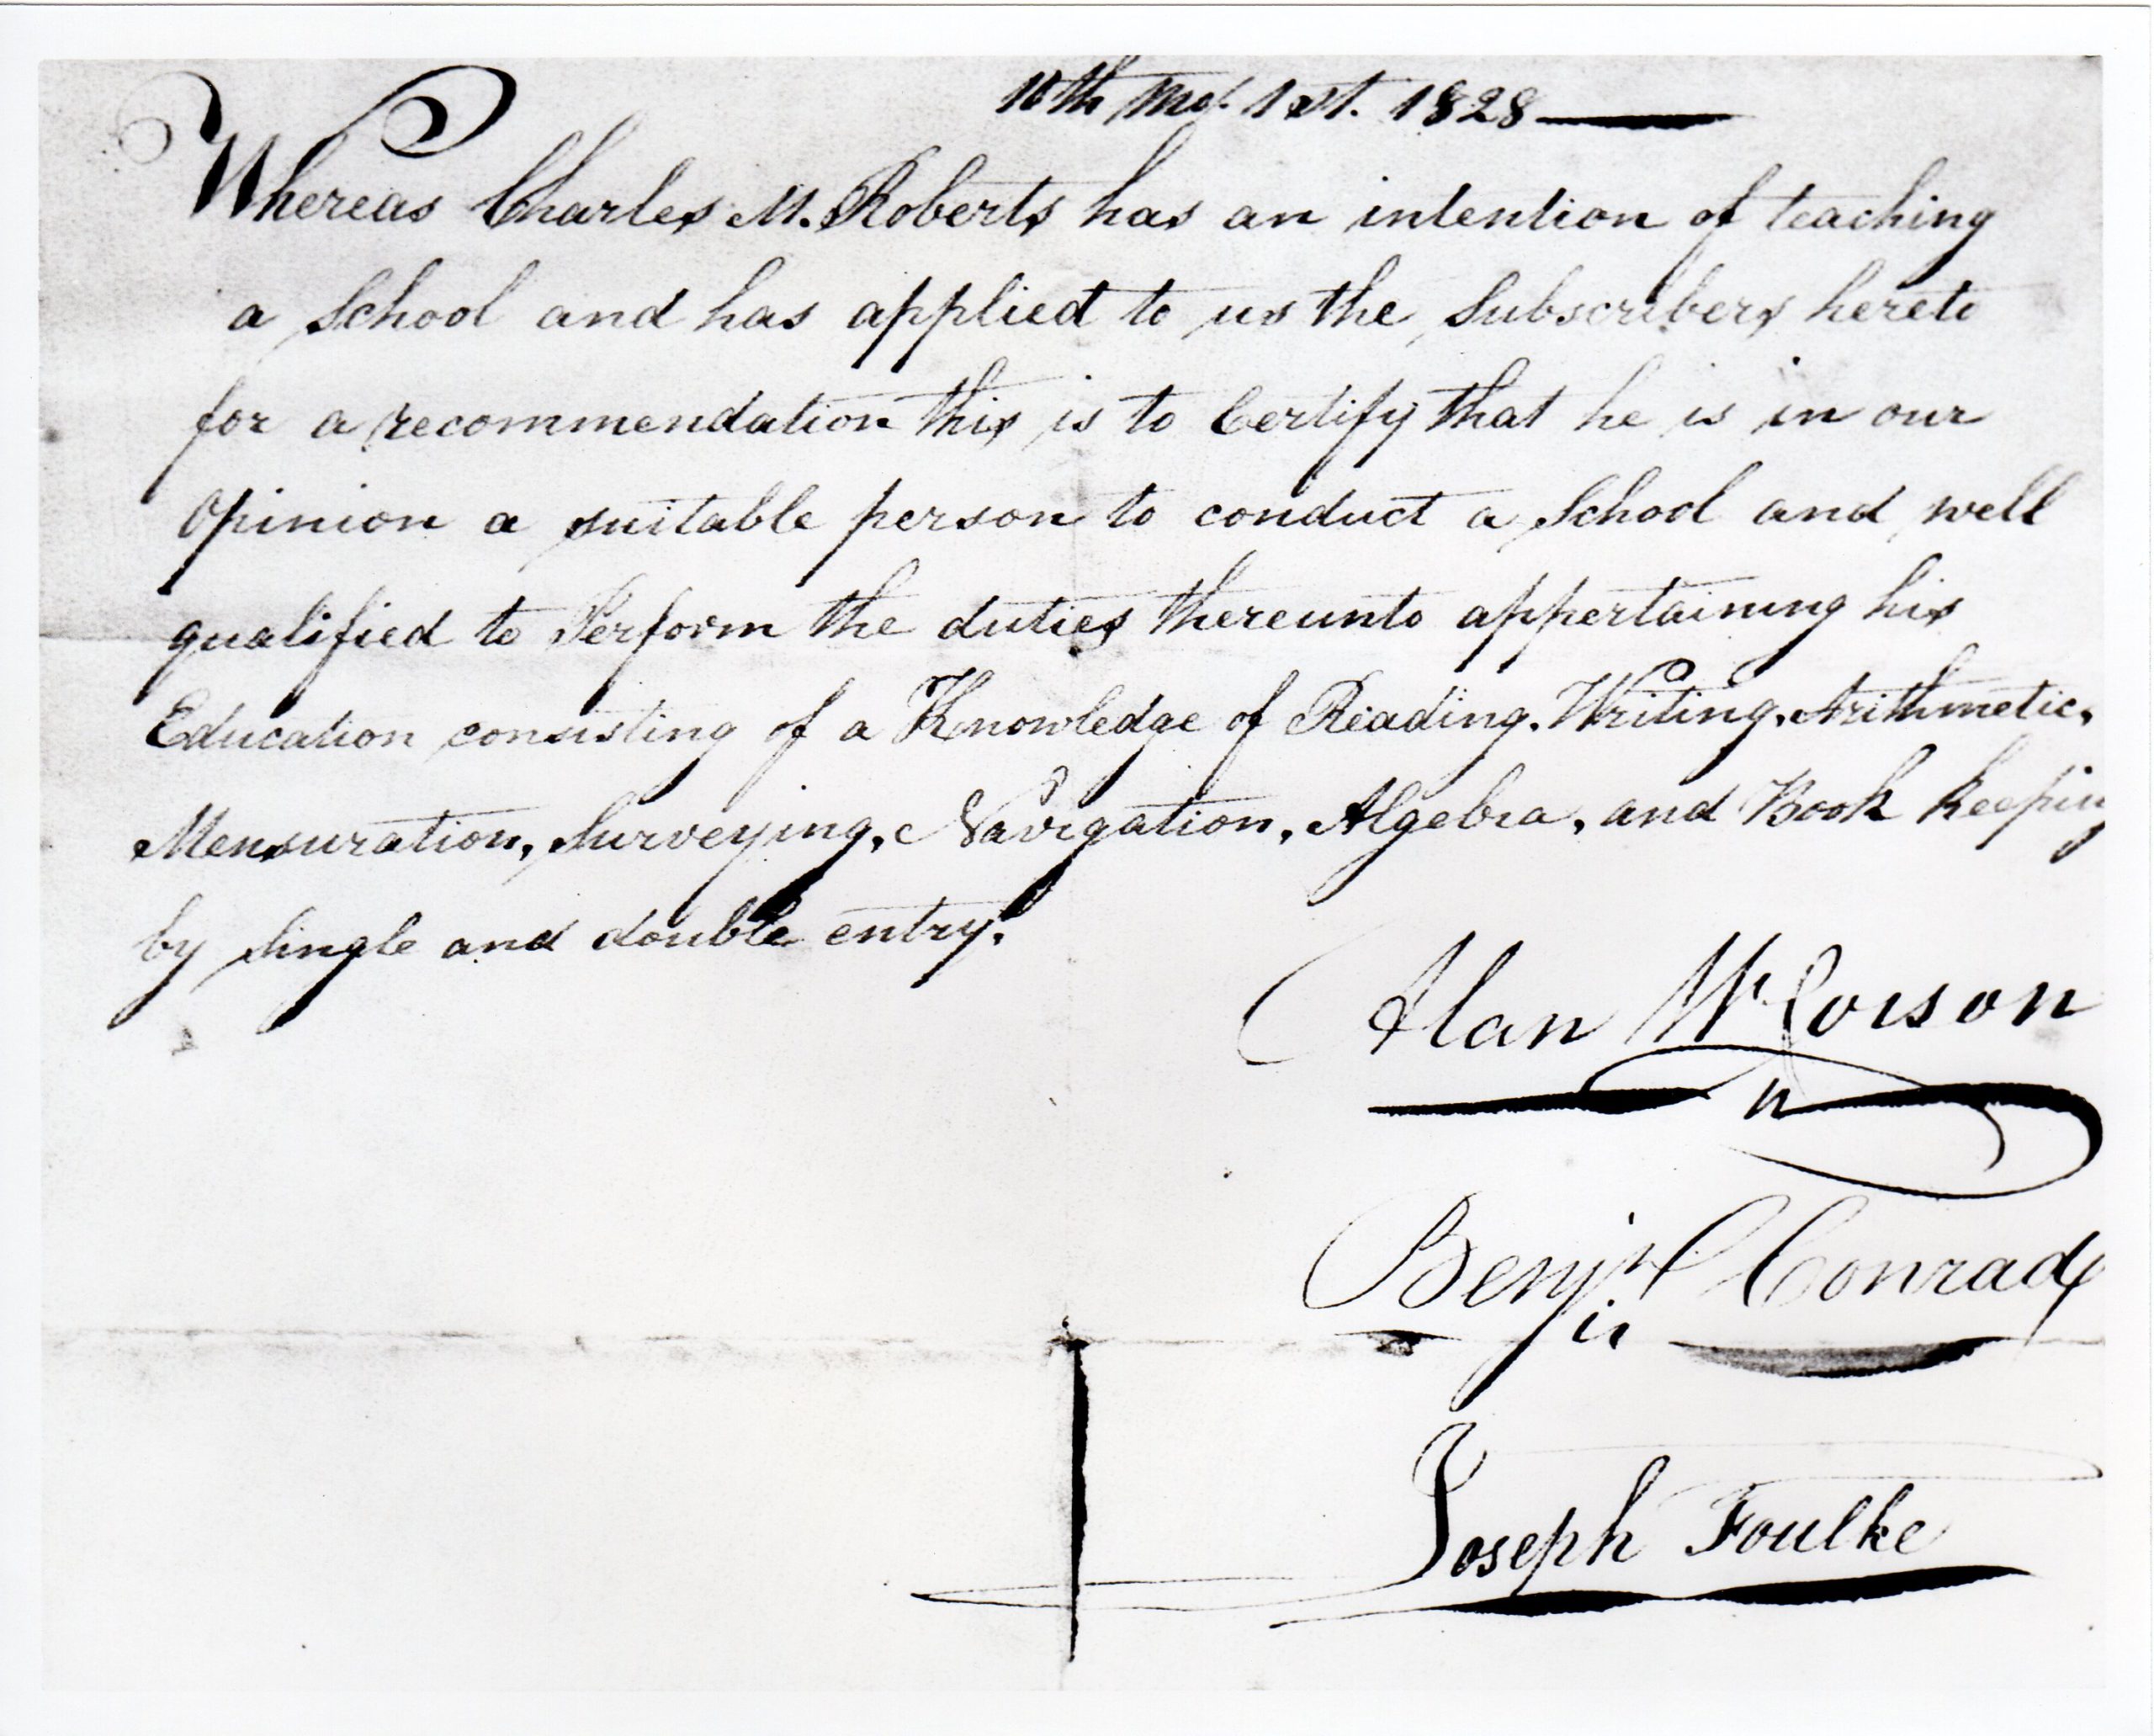 10th Mo. 1st. 1828
Whereas Charles M. Roberts has an intention of teaching
a School and has applied to us the Subscribers hereto
for a recommendation this is to Certify that he is in our
Opinion a suitable person to conduct a School and well
qualified to Perform the duties thereunto appertaining his
Education consisting of a Knowledge of Reading, Writing, Arithmetic,
Mensuration, Surveying, Navigation, Algebra, and Book Keeping
by Single and double entry.
Alan W. Corson
Benjn. Conrad
Joseph Foulke